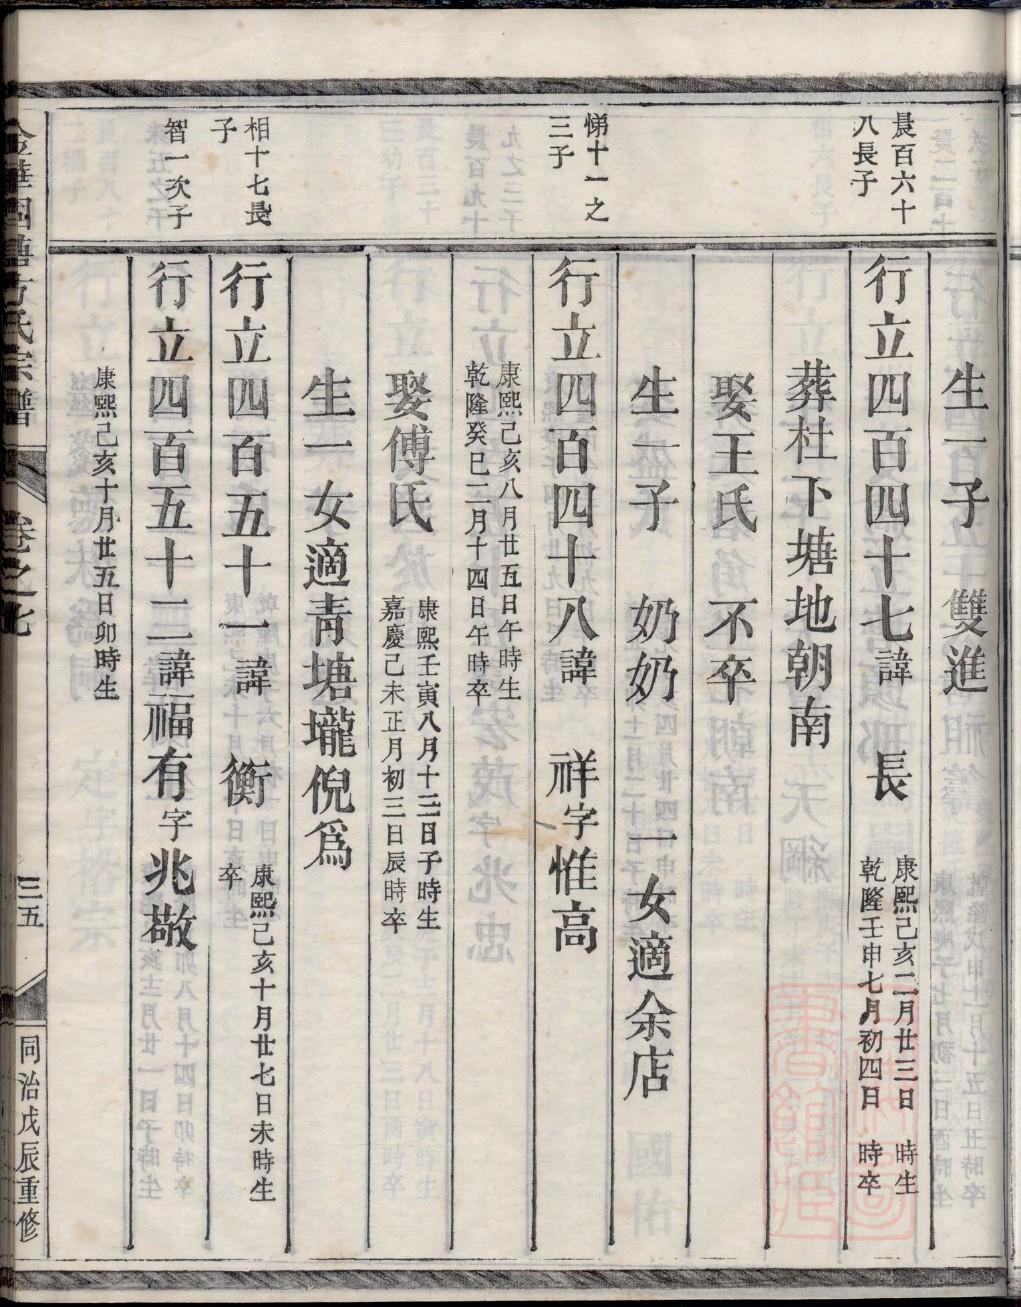 生一子　雙進
晨百六十
八長子
行立四百四十七諱　長　康熙己亥二月廿三日　時生
乾隆壬申七月初四日　時卒
葬杜下塘地朝南
娶王氏　不卒
生一子　奶奶　一女適余店
悌十一之
三子
行立四百四十八諱　祥字惟高
康熙己亥八月廿五日午時生
乾隆癸巳二月十四日午時卒
娶傅氏　康熙壬寅八月十三日子時生
嘉慶己未正月初三日辰時卒
生一女適靑塘壠倪爲
相十七長
子
行立四百五十一諱　衡　康熙己亥十月廿七日未時生
卒
智一次子
行立四百五十二諱福有字兆敬
康熙己亥十月廿五日卯時生
方氏宗譜
卷之七
三五
同治戊辰重修